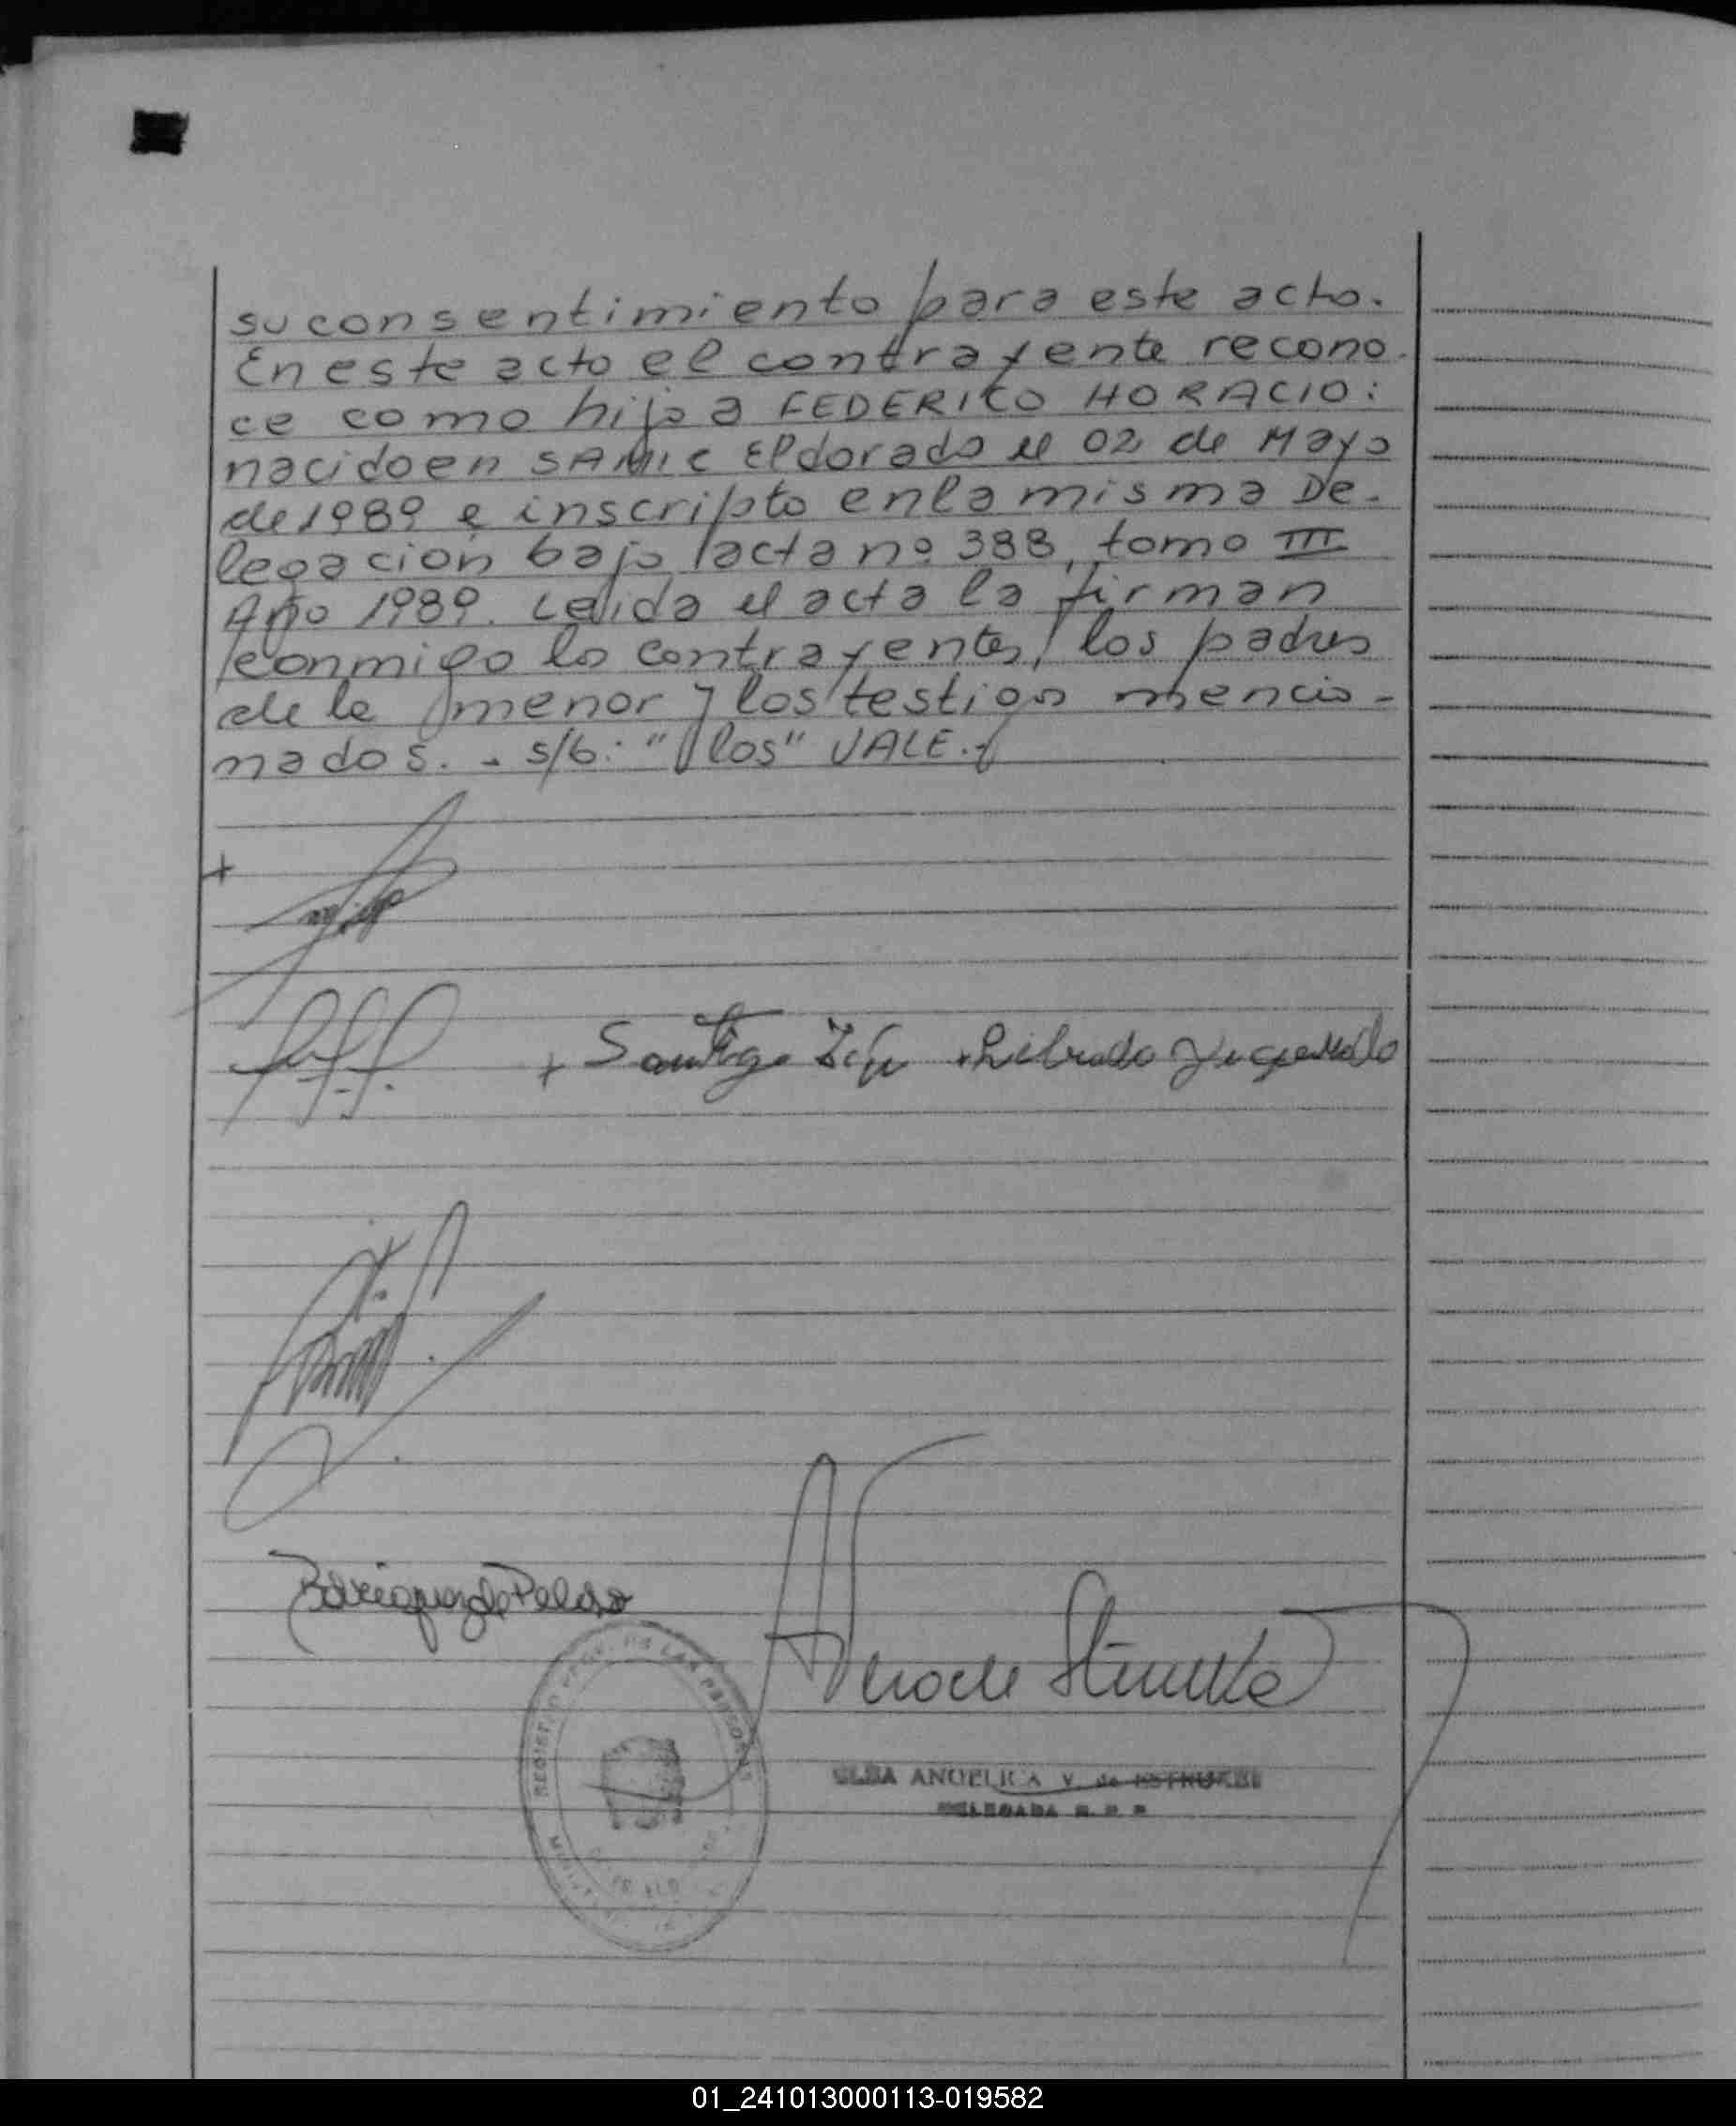 su consentimiento para este acto.
En este acto el contrayente recono-
ce como hijo a FEDERICO HORACIO:
nacido en SAMIC Eldorado el 02 de Mayo
de 1989 e inscripto en la misma De-
legación bajo acta nº 388, tomo III
Año 1989. Leida el acta la firman
conmigo lo contrayentes, los padres
de le menor y los testigos mencio-
nados. - s/b: "los" VALE.
+
+ Santiago
de
REGISTRO PROV. DE LAS PERSONAS
ANGELICA V. de
DELEGADA
01_241013000113-019582